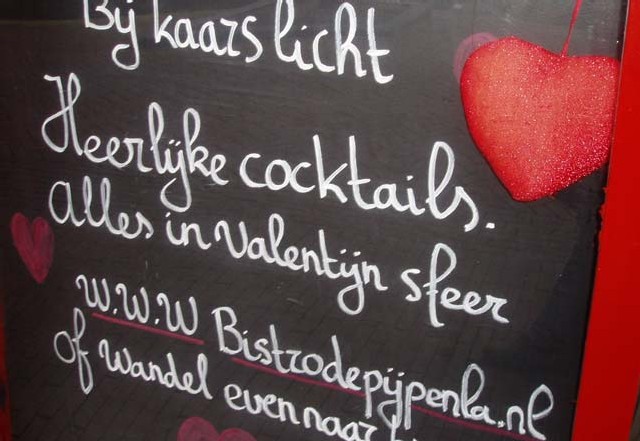 Bij kaars licht
Heerlijke cocktails.
Alles in Valentijn sfeer
W.W.W Bistrodepijpenla.nl
of wandel even naar